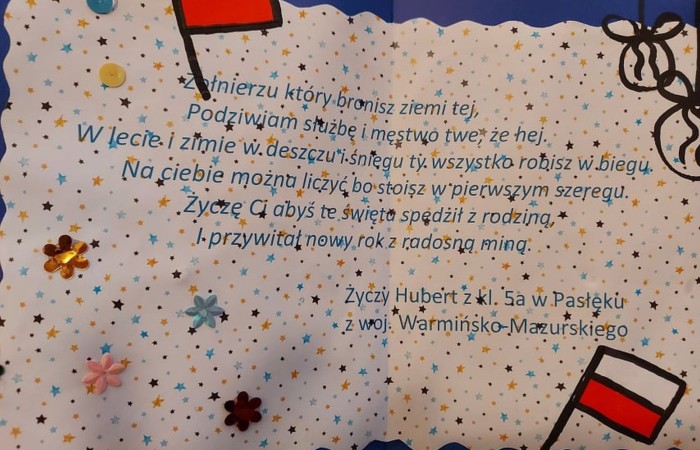 Żołnierzu który bronisz ziemi tej,
Podziwiam służbę i męstwo twe, że hej.
W lecie i zimie w deszczu i śniegu ty wszystko robisz w biegu.
Na ciebie można liczyć bo stoisz w pierwszym szeregu.
Życzę Ci abyś te święta spędził z rodziną,
I przywitał nowy rok z radosną miną.
Życzy Hubert z kl. 5a w Pasłęku
z woj. Warmińsko-Mazurskiego